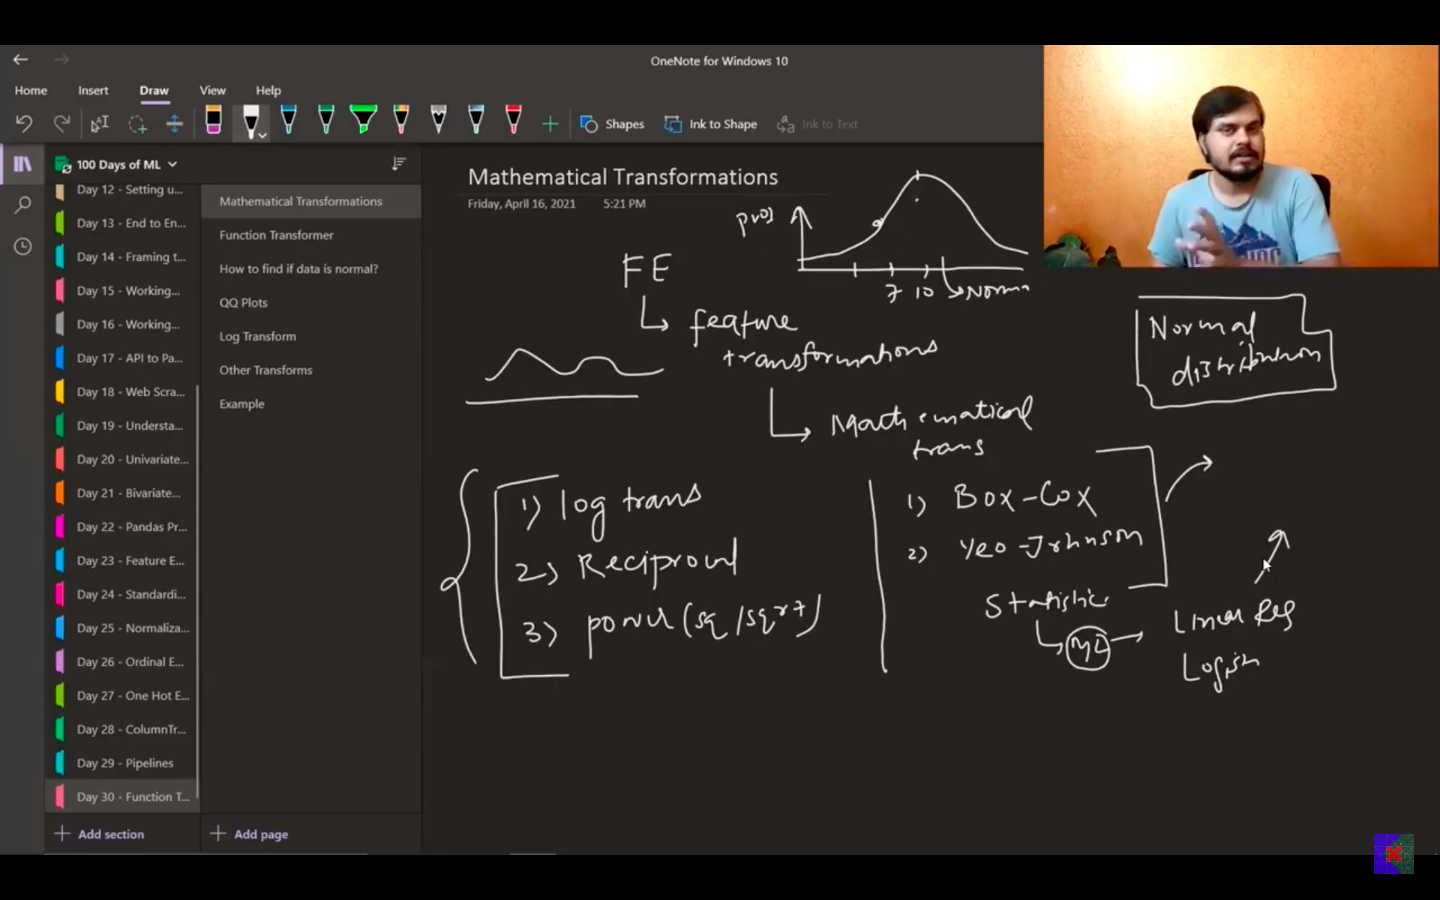 OneNote for Windows 10
Home Insert Draw View Help
Shapes Ink to Shape Ink to Text
100 Days of ML
Day 12 - Setting u...
Day 13 - End to En...
Day 14 - Framing t...
Day 15 - Working...
Day 16 - Working...
Day 17 - API to Pa...
Day 18 - Web Scra...
Day 19 - Understa...
Day 20 - Univariate...
Day 21 - Bivariate...
Day 22 - Pandas Pr...
Day 23 - Feature E...
Day 24 - Standardi...
Day 25 - Normaliza...
Day 26 - Ordinal E...
Day 27 - One Hot E...
Day 28 - ColumnTr...
Day 29 - Pipelines
Day 30 - Function T...
Add section
Mathematical Transformations
Function Transformer
How to find if data is normal?
QQ Plots
Log Transform
Other Transforms
Example
Add page
Mathematical Transformations
Friday, April 16, 2021 5:21 PM
7 10
FE
feature
transformations
Mathematical
trans
Normal
distribution
1) log trans
2) Reciprocal
3) power (sq/sqrt)
1) Box-Cox
2) Yeo-Johnson
Statistic
ML
Linear Reg